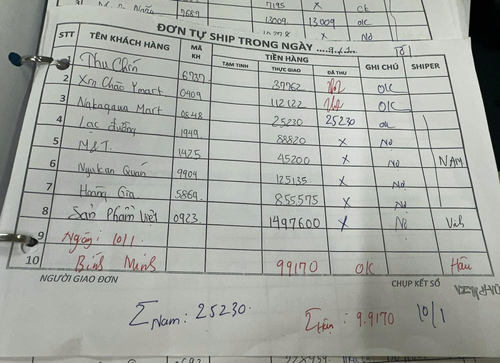 7195 X CK
7689 13009 13009 OK
X Nợ
ĐƠN TỰ SHIP TRONG NGÀY
STT TÊN KHÁCH HÀNG MÃ KH TIỀN HÀNG GHI CHÚ SHIPER
TẠM TINH THỰC GIAO ĐÃ THU
Thu Chín 6737 37762 OK
2 Xin Chào Ymart 0909 112122 OK
3 Nakagawa Mart 0848 25230 25230 OK
4 Lạc đường 1949 88820 X Nợ
5 M&T. 1425 45200 X Nợ NAM
6 Nyukan Quán 9904 125135 X Nợ
7 Hoàng Gia 5869 855575 X Nợ
8 Sản Phẩm Việt 0923 1497600 X Nợ
9 Ngày: 10/1.
10 Bình Minh 99170 OK Hậu
NGƯỜI GIAO ĐƠN CHỤP KẾT SỔ
Σ Nam: 25230.
Σ Hậu: 9.9170 10/1